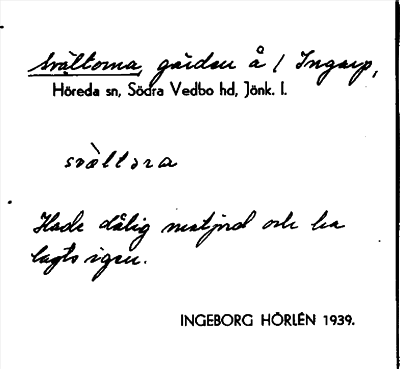 Svältorna, gärden å / Ingarp,
Höreda sn, Södra Vedbo hd, Jönk. l.
svàltɔra
Hade dålig matjord och ha
lagts igen.
INGEBORG HÖRLÉN 1939.